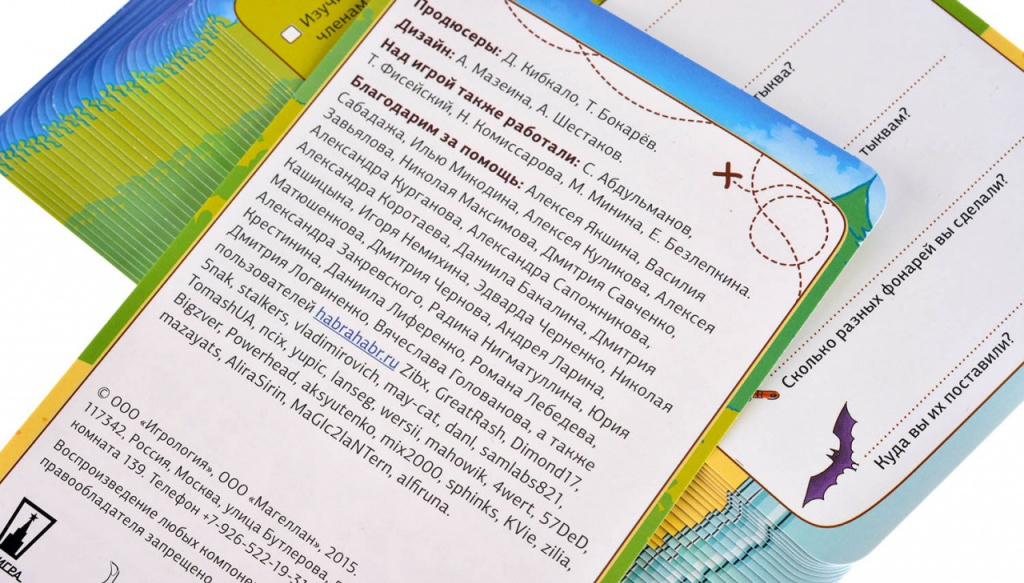 Изучи
членам
Продюсеры: Д. Кибкало, Т. Бокарёв.
Дизайн: А. Мазеина, А. Шестаков.
Над игрой также работали: С. Абдульманов,
Т. Фисейский, Н. Комиссарова, М. Минина, Е. Безлепкина.
Благодарим за помощь: Алексея Якшина, Василия
Сабаджа, Илью Микодина, Алексея Куликова, Алексея
Завьялова, Николая Максимова, Дмитрия Савченко,
Александра Курганова, Александра Сапожникова,
Александра Коротаева, Даниила Бакалина, Дмитрия
Кашицына, Игоря Немихина, Эдварда Черненко, Николая
Матюшенкова, Дмитрия Чернова, Андрея Ларина
Александра Закревского, Радика Нигматуллина, Юрия
Крестинина, Даниила Лиференко, Романа Лебедева,
Дмитрия Логвиненко, Вячеслава Голованова, а также
пользователей habrahabr.ru Zibx, GreatRash, Dimond17,
Snak, stalkers, vladimirovich, may-cat, danl, samlabs821,
TomashUA, ncix, yupic, ianseg, wersii, mahowik, 4wert, 57DeD,
Bigzver, Powerhead, aksyutenko, mix2000, sphinks, KVie, zilia,
mazayats, AliraSirin, MaGIc2laNTern, alfiruna.
© ООО «Игрология», ООО «Магеллан», 2015.
117342, Россия, Москва, улица Бутлерова,
комната 139. Телефон +7-926-522-19-3
Воспроизведение любых компоне
правообладателя запрещено
ИГРА
тыква?
тыквам?
Сколько разных фонарей вы сделали?
Куда вы их поставили?